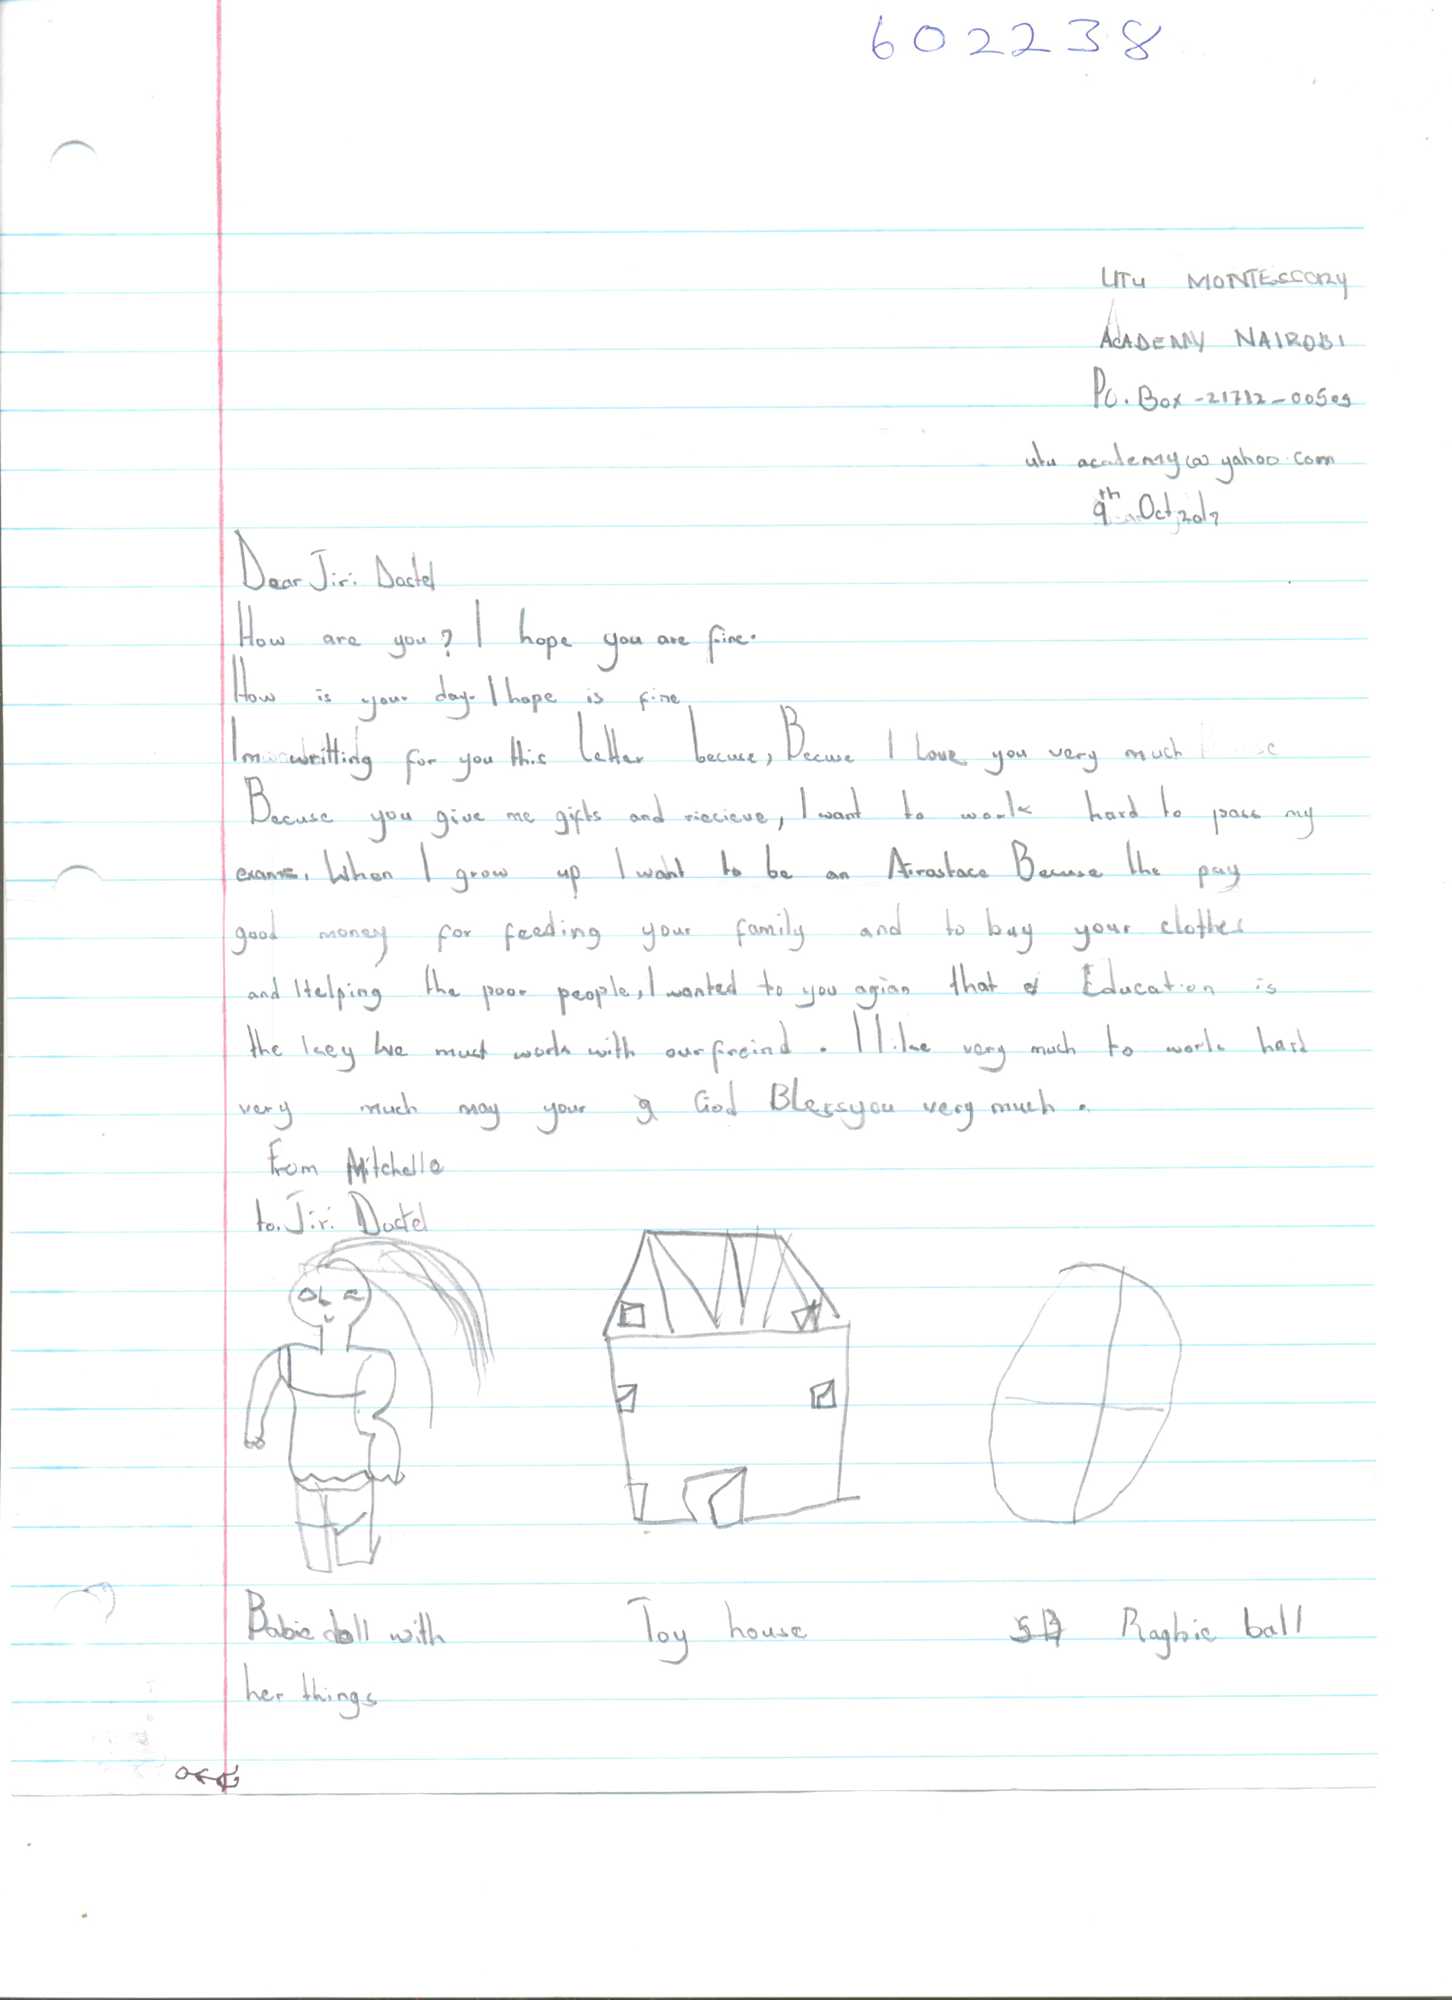 602238
UTU MONTESCORY
ACADEMY NAIROBI
P.O. Box -21712-00509
utu academy@yahoo.com
9th Oct, 2017
Dear Jiri Dostel
How are you? I hope you are fine.
How is your day. I hope is fine
Im writting for you this letter becuse, Becuse I Love you very much
Becuse you give me gifts and riecieve, I want to work hard to pass my
exams. When I grow up I want to be an Airostace Becuse the pay
good money for feeding your family and to buy your clothes
and Helping the poor people, I wanted to you agian that Education is
the key We must work with our freind. I like very much to work hard
very much may your God Bless you very much.
From Mitchelle
to. Jiri Dostel
Babie doll with Toy house Ragbie ball
her things